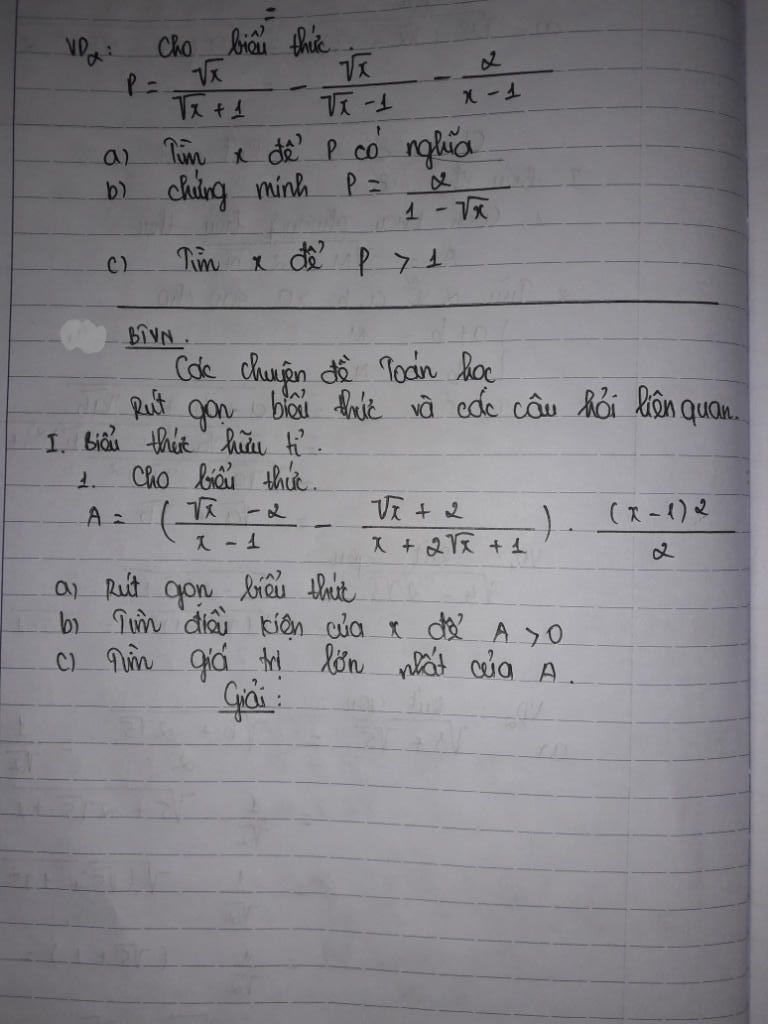 VD2: Cho biểu thức.
P = √x / (√x + 1) - √x / (√x - 1) - 2 / (x - 1)
a) Tìm x để P có nghĩa
b) chứng minh P = 2 / (1 - √x)
c) Tìm x để P > 1
BTVN.
Các chuyện đề Toán học
Rút gọn biểu thức và các câu hỏi liên quan.
I. Biểu thức hữu tỉ.
1. Cho biểu thức.
A = ((√x - 2) / (x - 1) - (√x + 2) / (x + 2√x + 1)) . (x - 1)² / 2
a) Rút gọn biểu thức
b) Tìm điều kiện của x để A > 0
c) Tìm giá trị lớn nhất của A.
Giải: